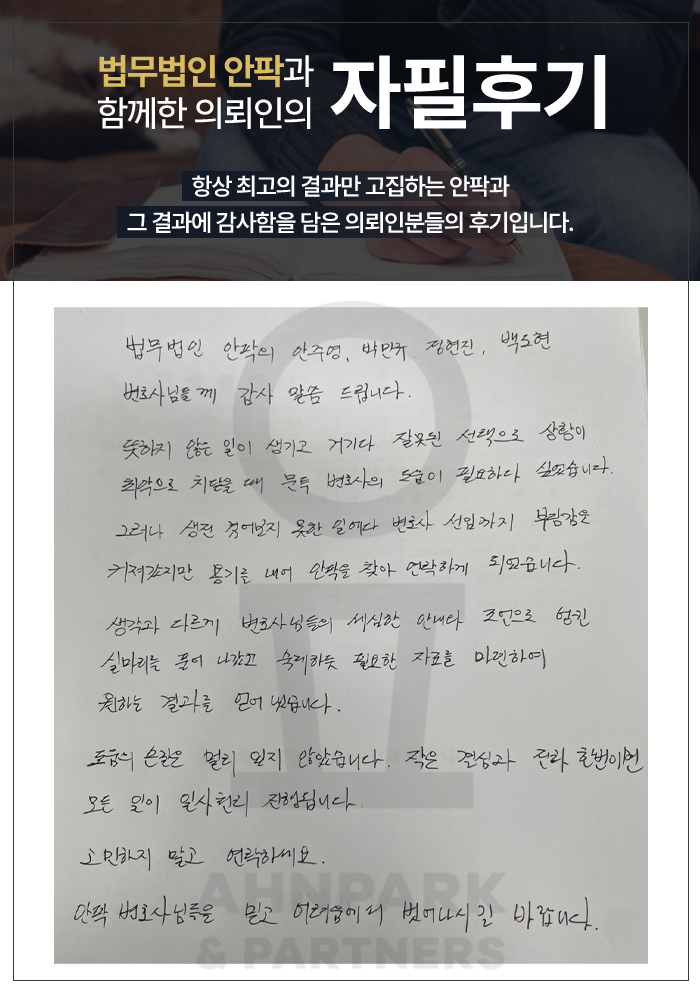 법무법인 안팍과
함께한 의뢰인의
자필후기
항상 최고의 결과만 고집하는 안팍과
그 결과에 감사함을 담은 의뢰인분들의 후기입니다.
법무법인 안팍의 안주영, 박민규, 정현진, 백도현
변호사님들께 감사 말씀 드립니다.
뜻하지 않은 일이 생기고 거기다 잘못된 선택으로 상황이
최악으로 치달을 때 문득 변호사의 도움이 필요하다 싶었습니다.
그러나 생전 겪어보지 못한 일에다 변호사 선임까지 부담감은
커져갔지만 용기를 내어 안팍을 찾아 연락하게 되었습니다.
생각과 다르게 변호사님들의 세심한 안내와 조언으로 엉킨
실마리를 풀어 나갔고 숙제하듯 필요한 자료를 마련하여
원하는 결과를 얻어 냈습니다.
도움의 손길은 멀리 있지 않았습니다. 작은 결심과 전화 한번이면
모든 일이 일사천리 진행됩니다.
고민하지 말고 연락하세요.
안팍 변호사님들을 믿고 어려움에서 벗어나시길 바랍니다.
AHNPARK
& PARTNERS